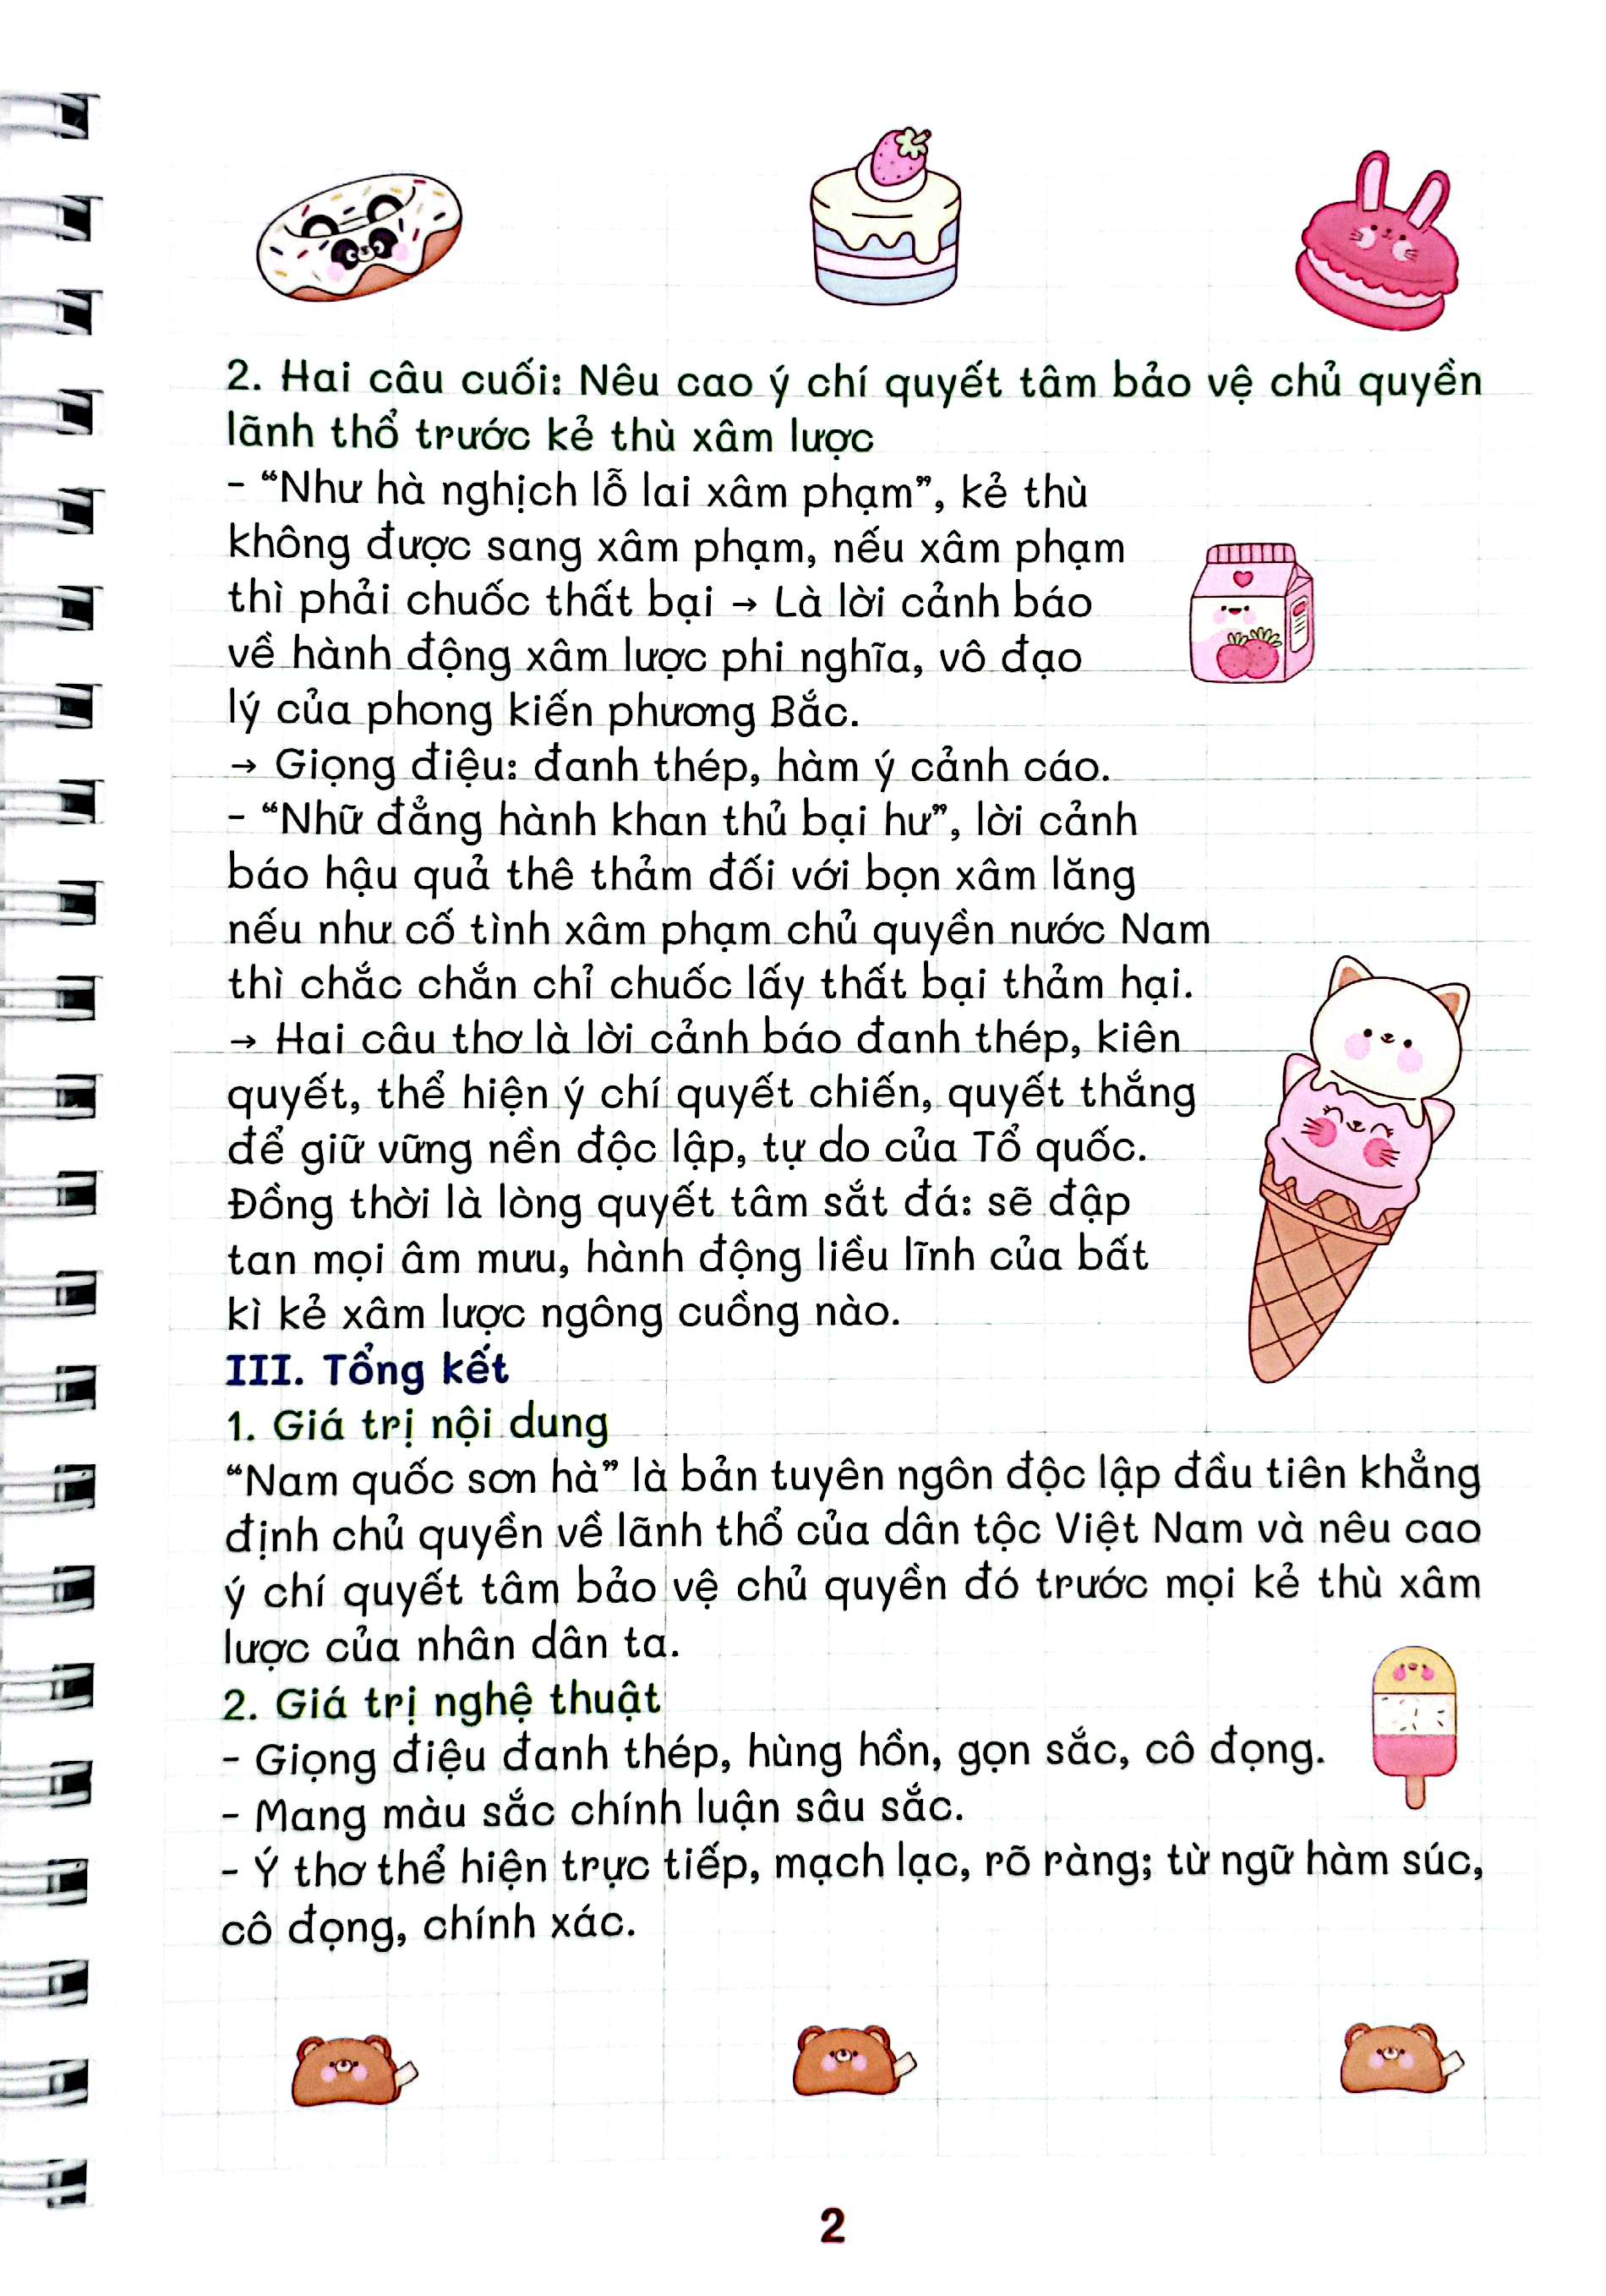 2. Hai câu cuối: Nêu cao ý chí quyết tâm bảo vệ chủ quyền
lãnh thổ trước kẻ thù xâm lược
- “Như hà nghịch lỗ lai xâm phạm”, kẻ thù
không được sang xâm phạm, nếu xâm phạm
thì phải chuốc thất bại → Là lời cảnh báo
về hành động xâm lược phi nghĩa, vô đạo
lý của phong kiến phương Bắc.
→ Giọng điệu: đanh thép, hàm ý cảnh cáo.
- “Nhữ đẳng hành khan thủ bại hư”, lời cảnh
báo hậu quả thê thảm đối với bọn xâm lăng
nếu như cố tình xâm phạm chủ quyền nước Nam
thì chắc chắn chỉ chuốc lấy thất bại thảm hại.
→ Hai câu thơ là lời cảnh báo đanh thép, kiên
quyết, thể hiện ý chí quyết chiến, quyết thắng
để giữ vững nền độc lập, tự do của Tổ quốc.
Đồng thời là lòng quyết tâm sắt đá: sẽ đập
tan mọi âm mưu, hành động liều lĩnh của bất
kì kẻ xâm lược ngông cuồng nào.
III. Tổng kết
1. Giá trị nội dung
“Nam quốc sơn hà” là bản tuyên ngôn độc lập đầu tiên khẳng
định chủ quyền về lãnh thổ của dân tộc Việt Nam và nêu cao
ý chí quyết tâm bảo vệ chủ quyền đó trước mọi kẻ thù xâm
lược của nhân dân ta.
2. Giá trị nghệ thuật
- Giọng điệu đanh thép, hùng hồn, gọn sắc, cô đọng.
- Mang màu sắc chính luận sâu sắc.
- Ý thơ thể hiện trực tiếp, mạch lạc, rõ ràng; từ ngữ hàm súc,
cô đọng, chính xác.
2